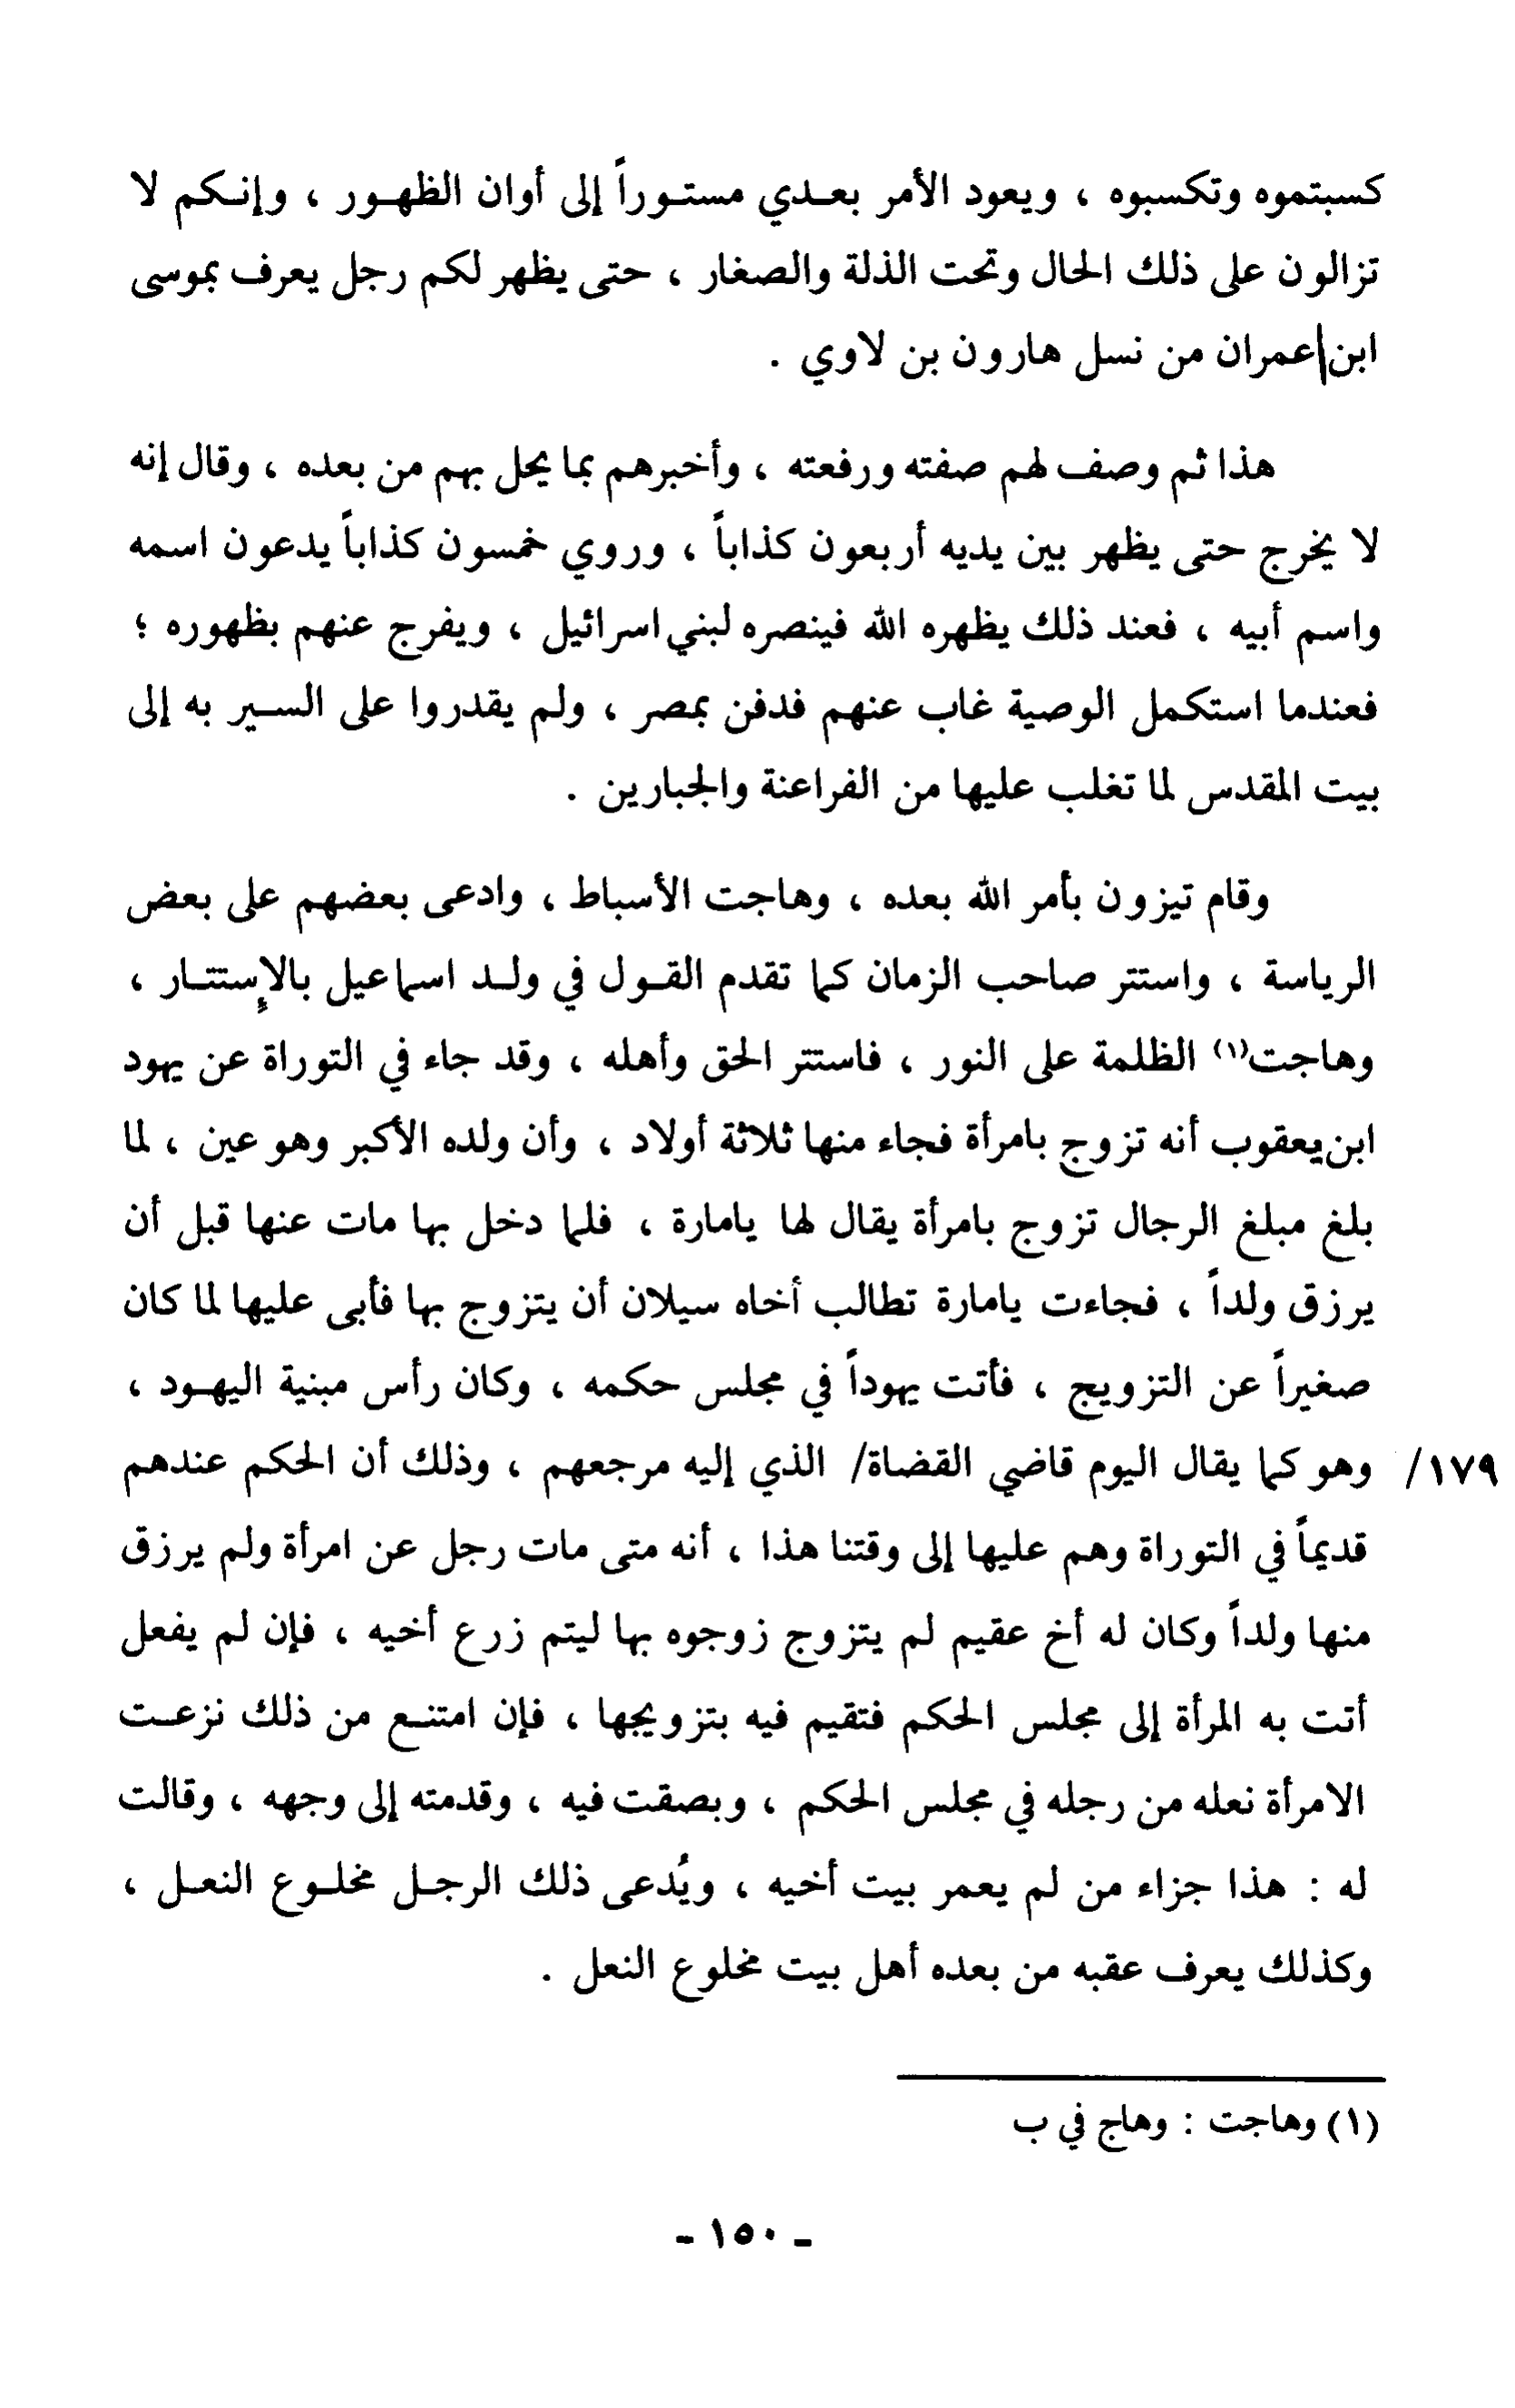 كسبتموه وتكسبوه ، ويعود الأمر بعدي مستوراً إلى أوان الظهور ، وإنكم لا
تزالون على ذلك الحال وتحت الذلة والصغار ، حتى يظهر لكم رجل يعرف بموسى
ابن عمران من نسل هارون بن لاوي .
هذا ثم وصف لهم صفته ورفعته ، وأخبرهم بما يحل بهم من بعده ، وقال إنه
لا يخرج حتى يظهر بين يديه أربعون كذاباً ، وروي خمسون كذاباً يدعون اسمه
واسم أبيه ، فعند ذلك يظهره الله فينصره لبني اسرائيل ، ويفرج عنهم بظهوره ؛
فعندما استكمل الوصية غاب عنهم فدفن بمصر ، ولم يقدروا على السير به إلى
بيت المقدس لما تغلب عليها من الفراعنة والجبارين .
وقام تيزون بأمر الله بعده ، وهاجت الأسباط ، وادعى بعضهم على بعض
الرياسة ، واستتر صاحب الزمان كما تقدم القول في ولد اسماعيل بالإستتار ،
وهاجت(١) الظلمة على النور ، فاستتر الحق وأهله ، وقد جاء في التوراة عن يهود
ابن يعقوب أنه تزوج بامرأة فجاء منها ثلاثة أولاد ، وأن ولده الأكبر وهو عين ، لما
بلغ مبلغ الرجال تزوج بامرأة يقال لها يامارة ، فلما دخل بها مات عنها قبل أن
يرزق ولداً ، فجاءت يامارة تطالب أخاه سيلان أن يتزوج بها فأبى عليها لما كان
صغيراً عن التزويج ، فأتت يهوداً في مجلس حكمه ، وكان رأس مبنية اليهود ،
١٧٩/ وهو كما يقال اليوم قاضي القضاة/ الذي إليه مرجعهم ، وذلك أن الحكم عندهم
قديماً في التوراة وهم عليها إلى وقتنا هذا ، أنه متى مات رجل عن امرأة ولم يرزق
منها ولداً وكان له أخ عقيم لم يتزوج زوجوه بها ليتم زرع أخيه ، فإن لم يفعل
أتت به المرأة إلى مجلس الحكم فتقيم فيه بتزويجها ، فإن امتنع من ذلك نزعت
الامرأة نعله من رجله في مجلس الحكم ، وبصقت فيه ، وقدمته إلى وجهه ، وقالت
له : هذا جزاء من لم يعمر بيت أخيه ، ويُدعى ذلك الرجل مخلوع النعل ،
وكذلك يعرف عقبه من بعده أهل بيت مخلوع النعل .
(١) وهاجت : وهاج في ب
- ١٥٠ -